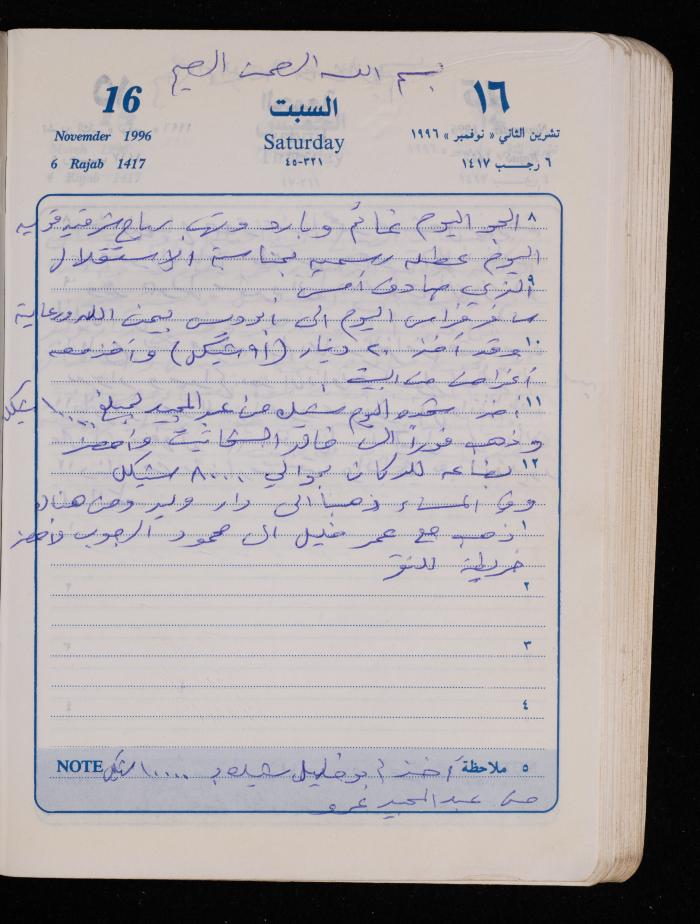 بسم الله الرحمن الرحيم
16 السبت ١٦
Novemder 1996 Saturday تشرين الثاني « نوفمبر » ١٩٩٦
6 Rajab 1417 ٣٢١-٤٥ ٦ رجب ١٤١٧
٨ الجو اليوم غائم وبارد وتهب رياح شرقية قوية
اليوم عطلة رسمية بمناسبة الاستقلال
٩ الذي صادف أمس
سافر فراس اليوم الى ابوديس بيمن الله ورعاية
١٠ وقد أخذ ٢٠ دينار (٩١ شيكل) وأخذ معه
أغراض من البيت
١١ أخذ اليوم من عبد المجيد مبلغ ١٠٠٠٠ شيكل
وذهب فوراً الى خالد وأحضر
١٢ بضاعة للدكان بحوالي ٨٠٠٠ شيكل
وفي المساء ذهبنا الى دار وليد ومن هناك
١ ذهب مع عمر خليل الى محمود الرجوب وأحضر
خريطة
٢
٣
٤
NOTE ٥ ملاحظة أخذ ابو خليل ١٠٠٠٠ شيكل
من عبد المجيد عمرو